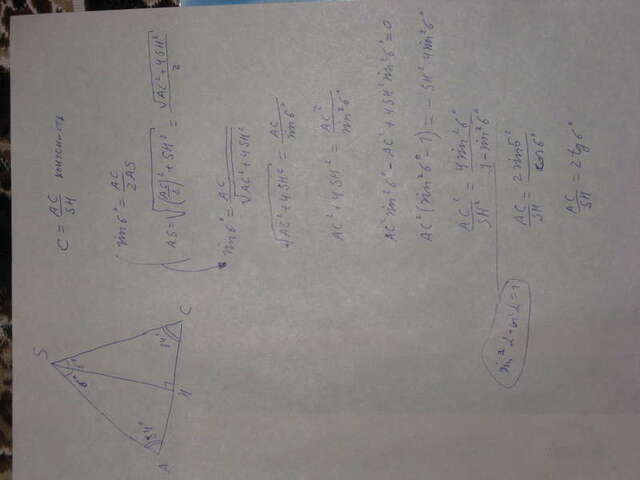 S
6° 6°
84° 84°
A H C
C = AC/SH конусность
sin6° = AC/2AS
AS = √((AC/2)² + SH²) = √(AC² + 4SH²)/2
sin6° = AC/√(AC² + 4SH²)
√(AC² + 4SH²) = AC/sin6°
AC² + 4SH² = AC²/sin²6°
AC² sin²6° - AC² + 4SH² sin²6° = 0
AC² (sin²6° - 1) = - SH² 4sin²6°
AC²/SH² = 4sin²6°/1 - sin²6°
AC/SH = 2sin6°/cos6°
AC/SH = 2tg6°